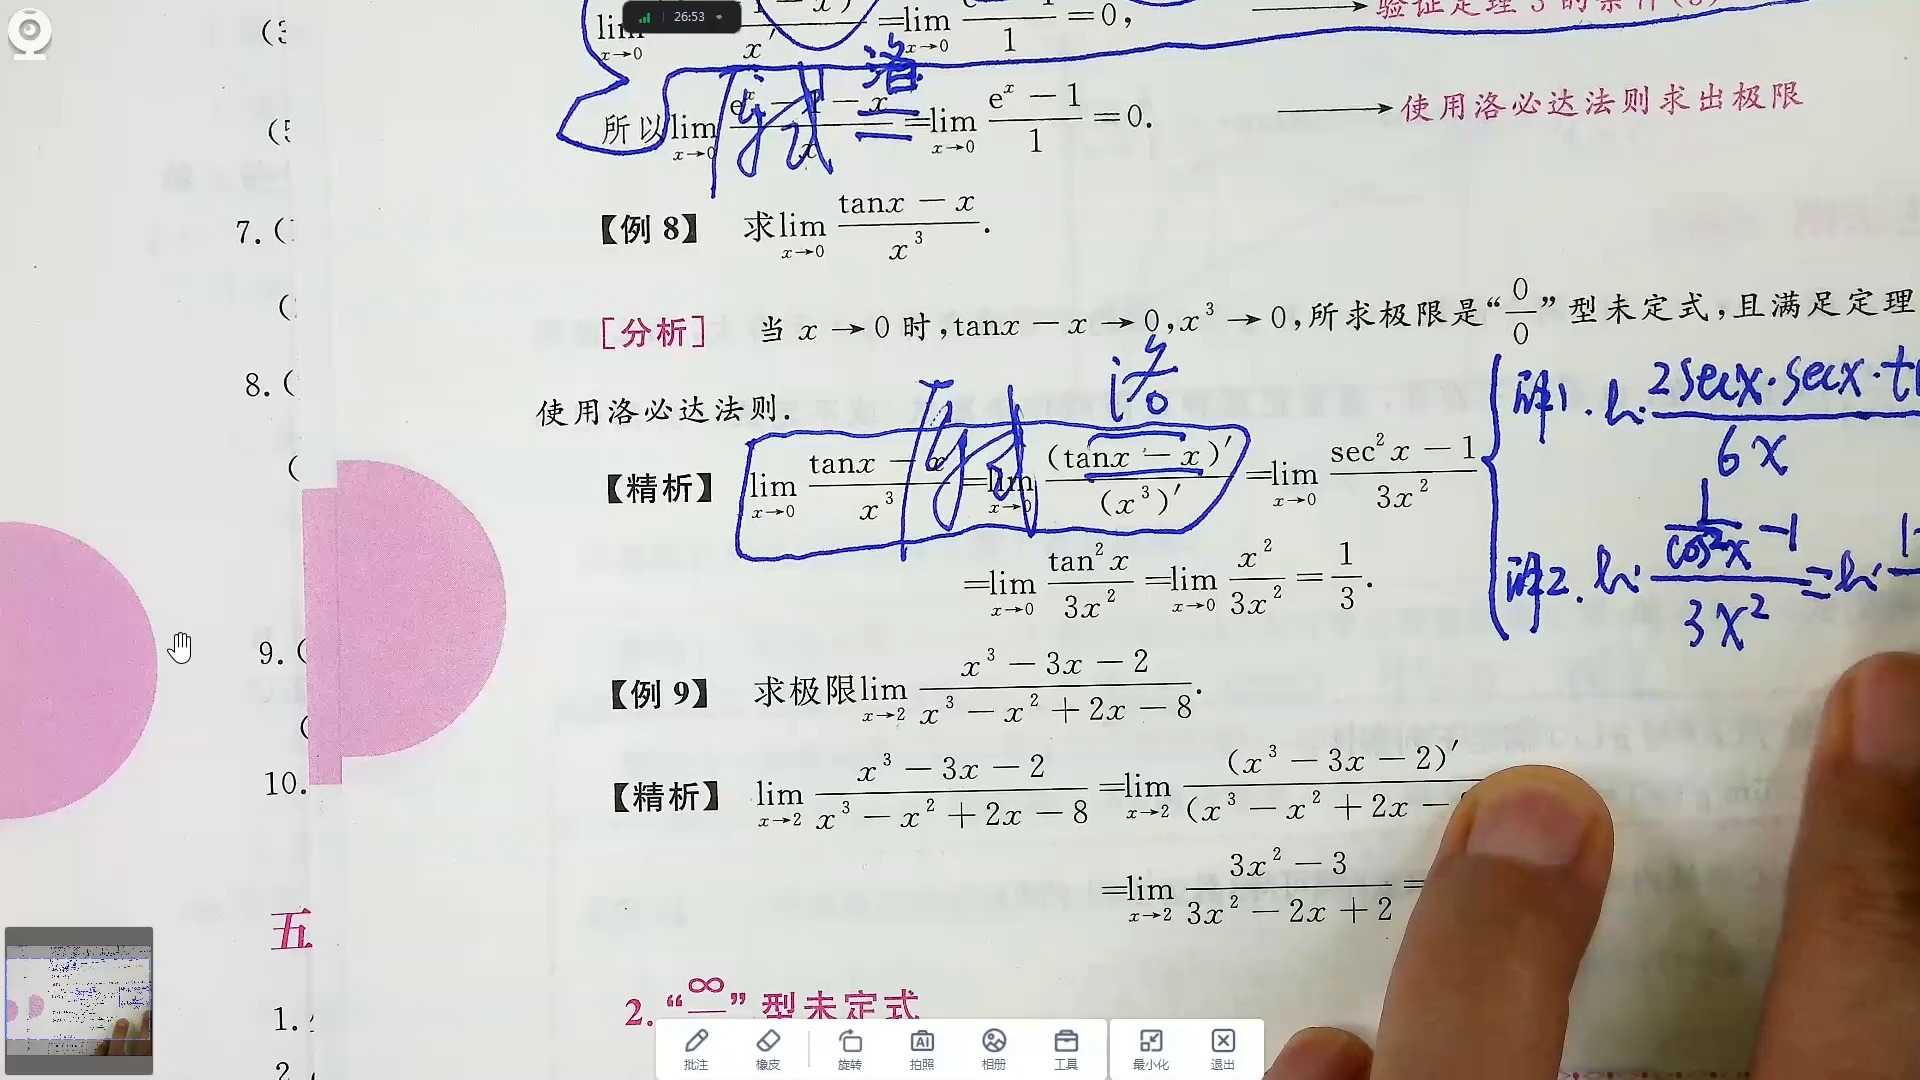 26:53
lim x→0 x′ =lim x→0 1 =0,
所以lim x→0 =lim x→0 (eˣ − 1)/1 =0. 洛 ⟶使用洛必达法则求出极限
7.(
【例 8】 求lim x→0 (tanx − x)/x³.
[分析] 当 x → 0 时,tanx − x → 0,x³ → 0,所求极限是“0/0”型未定式,且满足定理
8.(
使用洛必达法则.
洛
【精析】 lim x→0 (tanx − x)/x³ =lim x→0 (tanx − x)′/(x³)′ =lim x→0 (sec²x − 1)/3x²
=lim x→0 tan²x/3x² =lim x→0 x²/3x² = 1/3.
2secx·secx·t
6x
1/cos²x −1
3x²
9.(
【例 9】 求极限lim x→2 (x³ − 3x − 2)/(x³ − x² + 2x − 8).
10.
【精析】 lim x→2 (x³ − 3x − 2)/(x³ − x² + 2x − 8) =lim x→2 (x³ − 3x − 2)′/(x³ − x² + 2x −
=lim x→2 (3x² − 3)/(3x² − 2x + 2) =
五
2. “∞ ”型未定式
1.
2
批注 橡皮 旋转 拍照 相册 工具 最小化 退出